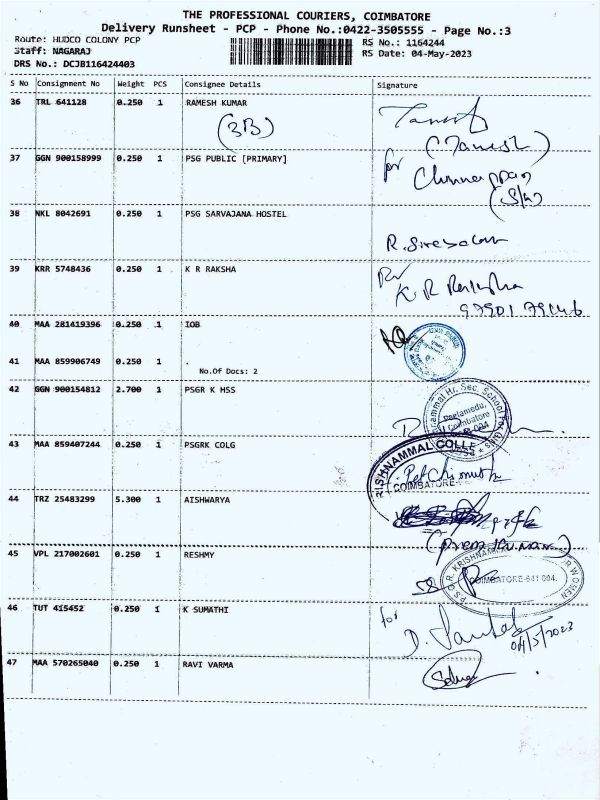 THE PROFESSIONAL COURIERS, COIMBATORE
Delivery Runsheet - PCP - Phone No.:0422-3505555 - Page No.:3
Route: HUDCO COLONY PCP
RS No.: 1164244
Staff: NAGARAJ
RS Date: 04-May-2023
DRS No.: DCJB116424403
S No Consignment No Weight PCS Consignee Details Signature
36 TRL 641128 0.250 1 RAMESH KUMAR
(3B)
37 GGN 900158999 0.250 1 PSG PUBLIC [PRIMARY] for
38 NKL 8042691 0.250 1 PSG SARVAJANA HOSTEL
39 KRR 5748436 0.250 1 K R RAKSHA
K. R Raksha
40 MAA 281419396 0.250 1 IOB
41 MAA 859906749 0.250 1
No.Of Docs: 2
42 GGN 900154812 2.700 1 PSGR K HSS
Peelamedu,
Coimbatore
43 MAA 859407244 0.250 1 PSGRK COLG
RISHNAMMAL COLLE
COIMBATORE
44 TRZ 25483299 5.300 1 AISHWARYA
(Prem Kumar)
45 VPL 217002601 0.250 1 RESHMY
P.S.G.R. KRISHNAMMAL
R WOMEN
COIMBATORE-641 004.
46 TUT 415452 0.250 1 K SUMATHI for
04/5/2023
47 MAA 570265040 0.250 1 RAVI VARMA